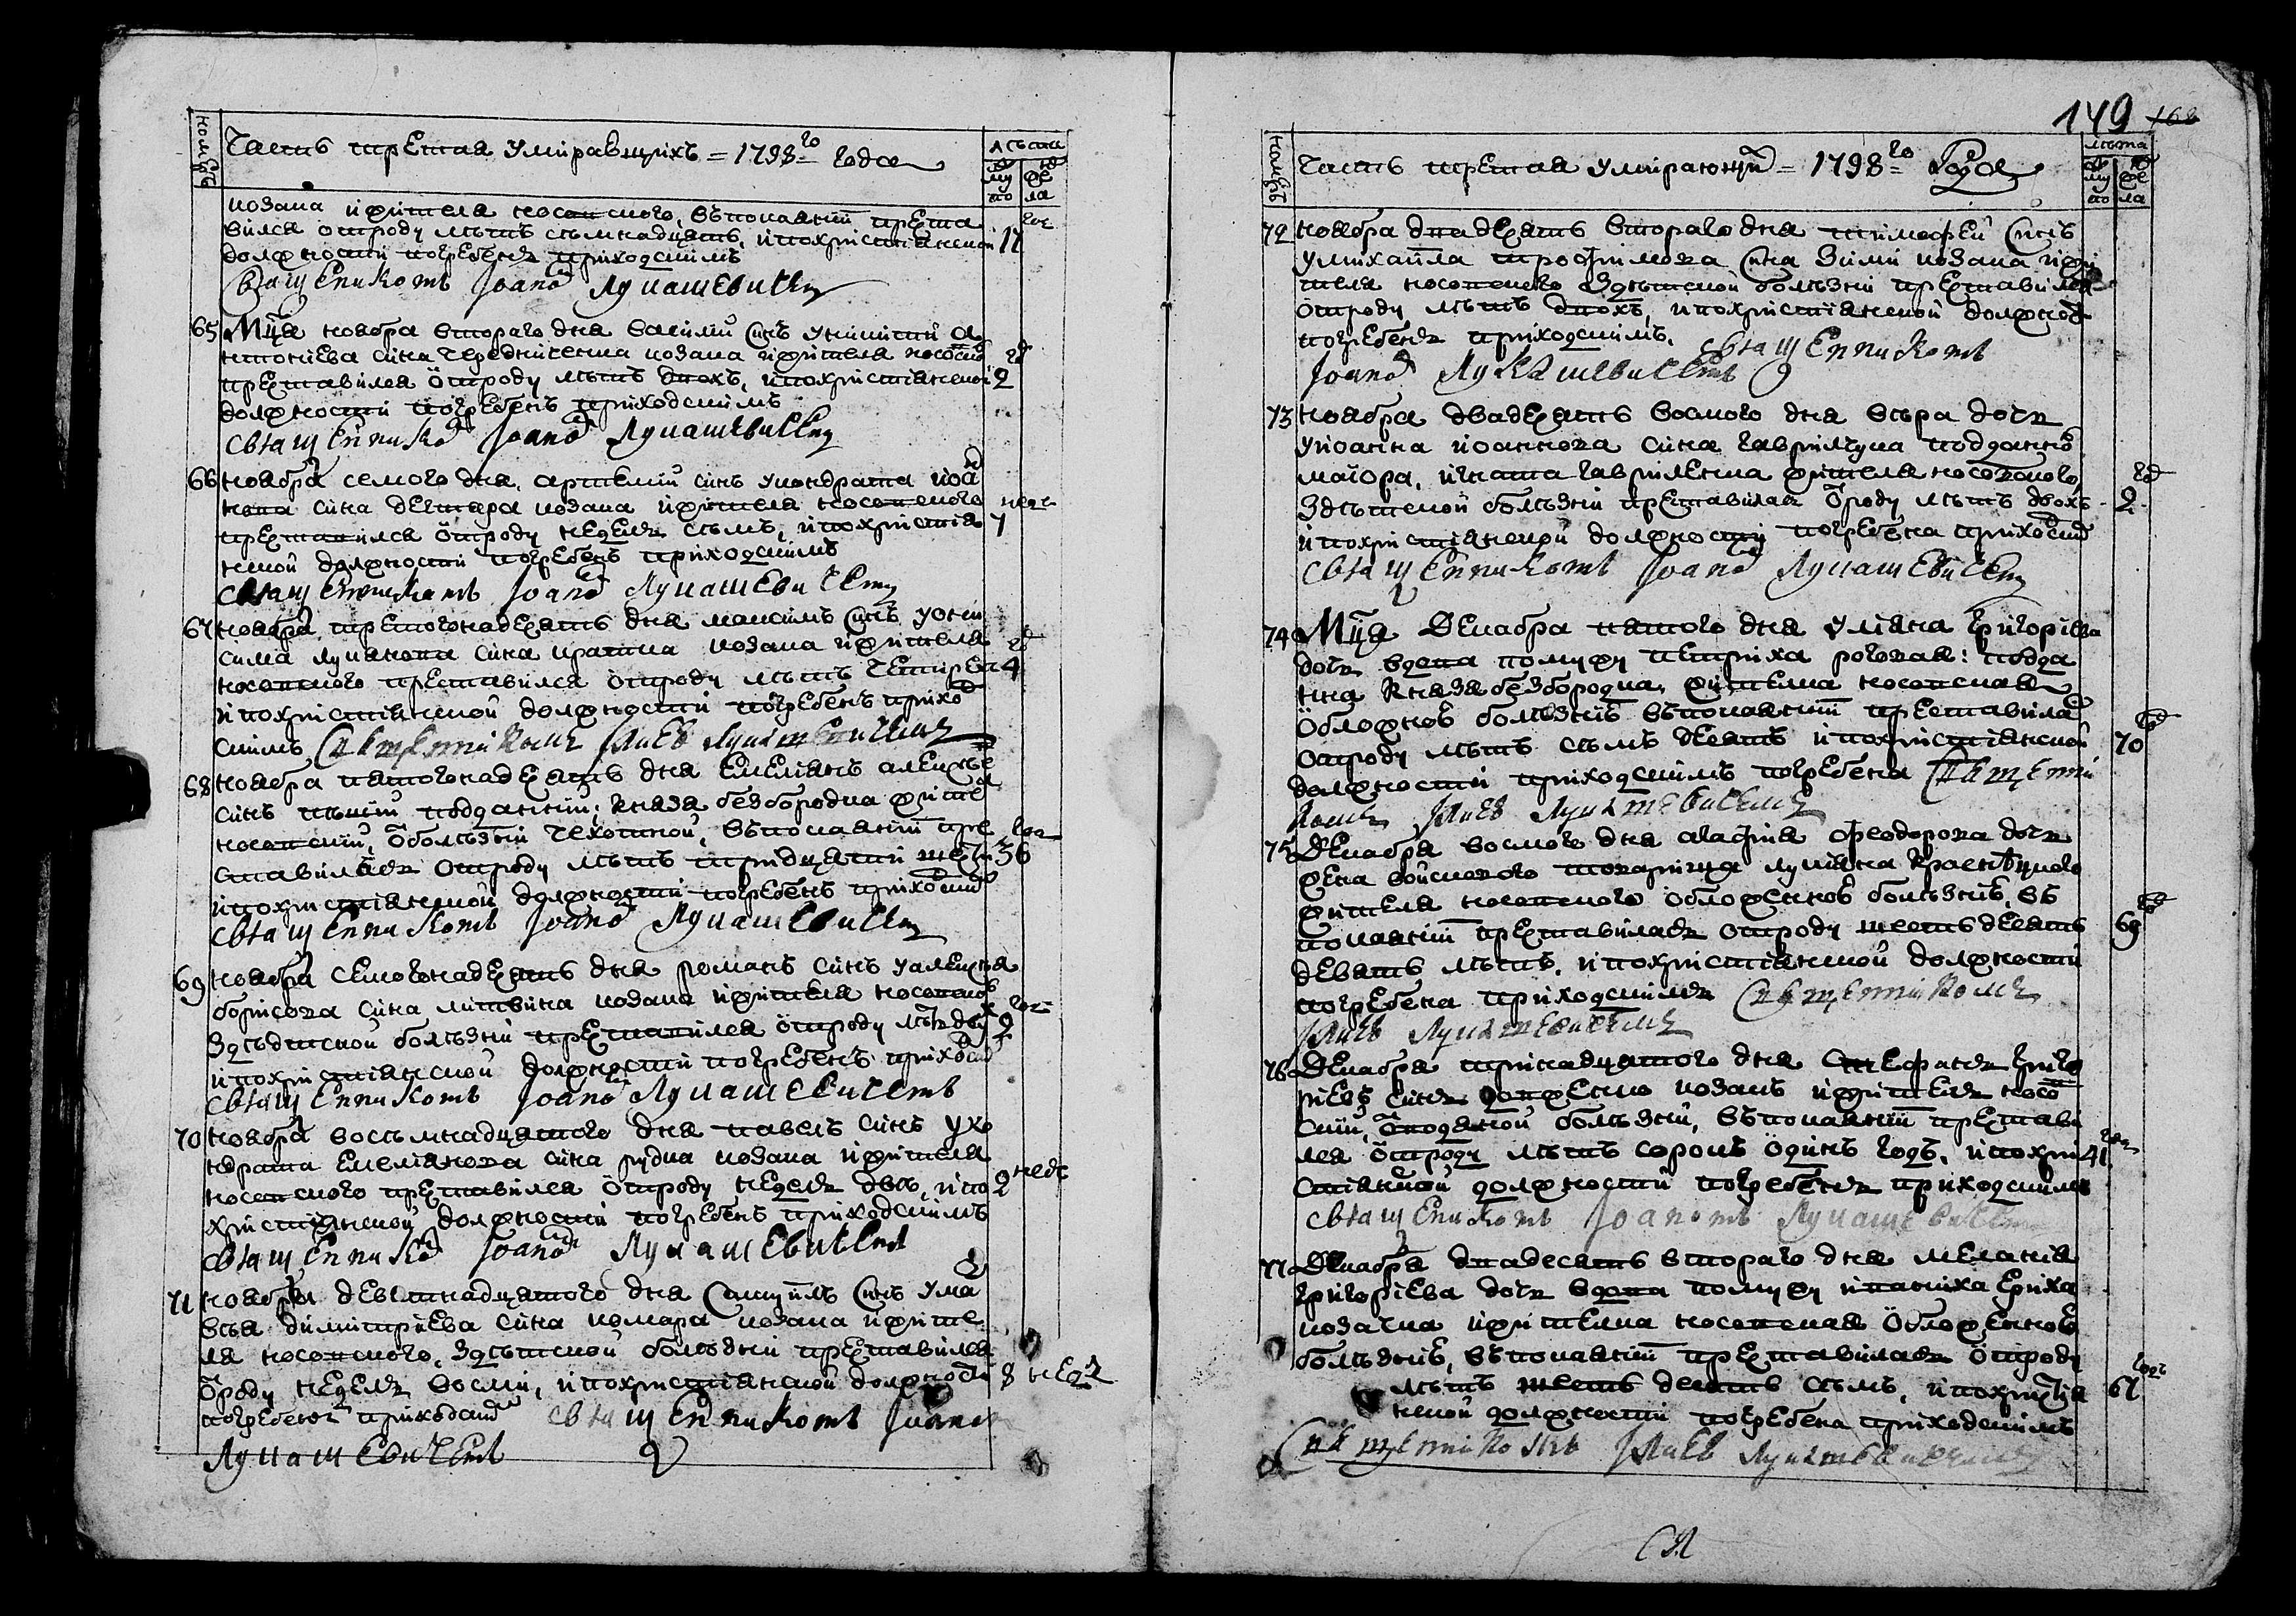 номеръ
Часть третая умiравшихъ = 1798го года
лѣта
му по
же ла
козака ижителя носовского, въпокаянiи преста
вился ѿтроду лѣтъ сѣмнадцать, ипохристiянской 17
должности погребенъ приходскимъ
священикомъ Іоаномъ Лукашевичем
65 Мца ноября второго дня василiй сiнъ
сiна Чередниченка козака ижителя носовско
преставился ѿтроду лѣтъ двохъ, ипохристiянской 2
должности погребенъ приходскимъ
священнико Іоано Лукашевичем
66 ноября семого дня, артемiй сiнъ укондрата
сiна дегтяра козака ижителя носовского
преставился ѿтроду недель сѣмъ, ипохристiя 7
нской должности погребенъ приходскимъ
священникомъ Іоано Лукашевичем
67 ноября третогонадцать дня максимъ сiнъ
сима лукянова сiна козака ижителя
носовского преставился ѿтроду лѣтъ четирех 4
ипохристiянской должности погребенъ прихо
скимъ священникомъ Іоано Лукашевичемъ
68 ноября пятогонадцать дня емелiянъ алексѣе
сiнъ подданнiй: князя безбородка жите
носовскiй, ѿболѣзнi чехотной, въпокаянiи пре
ставилъся ѿтроду лѣтъ трiдцяти шести 36
ипохристiянской должности погребенъ приходски
священникомъ Іоано Лукашевичем
69 ноября семогонадцать дня романъ сiнъ уалексѣя
борiсова сiна литвина козака ижителя носовско
здѣдтской болѣзнi преставился ѿтроду лѣтъ двух 2
ипохристiянской должности погребенъ приход
священникомъ Іоано Лукашевичемъ
70 ноября восѣмнадцатого дня павелъ сiнъ уко
ндрата емелiянова сiна рудка козака ижителя
носовского преставился ѿтроду недель двѣ, ипо 2 неде
христiянской должности погребенъ приходскимъ
священнико Іоано Лукашевичемъ
71 ноября девятнадцатого дня Самуилъ сiнъ ума
вѣя димитрiева сiна комара козака ижите
ля носовского, здѣтской болѣзнi преставился
ѿроду недель восми, ипохристiянской должности 8 недель
погребенъ приходски священникомъ Іоано
Лукашевичемъ
149 168
номеръ
Часть третая умiрающихъ = 1798го Года
лѣта
му по
же ла
72 ноября двадцать второго дня тимофей сiнъ
умихайла трофимова сiна Зими козака ижи
теля носовского здѣтской болѣзнi преставился
ѿтроду лѣтъ двохъ, ипохристiянской должнос
погребенъ приходскимъ, священникомъ
Іоано Лукашевичемъ
73 ноября двадцать восмого дня вѣра дочь
уиоанна иоаннова сiна гаврилчука подданно
маiора, игната гавриленка жителя носовского
Здѣтской болѣзнi преставилась ѿроду лѣтъ двохъ 2
ипохристiянской должности погребена приходски
священникомъ Іоано Лукашевичем
74 Мца Декабря пятого дня улiяна григорiева
дочь вдова помужу петриха роговая: подда
нна князя безбородка, жителка носовская
ѿбложной болѣзнi въпокаянiи преставила
ѿтроду лѣтъ сѣмъ десять ипохристiянской 70
должности приходскимъ погребена священни
комъ Іоано Лукашевичемъ
75 Декабря восмого дня агафiя феодорова дочь
жена войскового товарища лукiяна
жителя носовского ѿбложной болѣзнi, въ
покаянiи преставилась ѿтроду шесть десять 69
девять лѣтъ, ипохристiянской должности
погребена приходскимъ священникомъ
Іоано Лукашевичемъ
76 Декабря тринадцатого дня Стефанъ григо
риевъ сiнъ козакъ ижитель носов
скiй, болѣзнi, въпокаянiи престави
лся ѿтроду лѣтъ сорокъ ѡдинъ годъ, ипохри 41
стiянской должности погребенъ приходскимъ
священикомъ Іоаномъ Лукашевичем
77 Декабря двадесять второго дня меланiя
григорiева дочь вдова помужу
козачка ижителка носовская ѿбложенной
болѣзнi, въпокаянiи преставилась ѿтроду
лѣтъ шесть десять сѣмъ, ипохристiя 67
нской должности погребена приходскимъ
священникомъ Іоано Лукашевичемъ